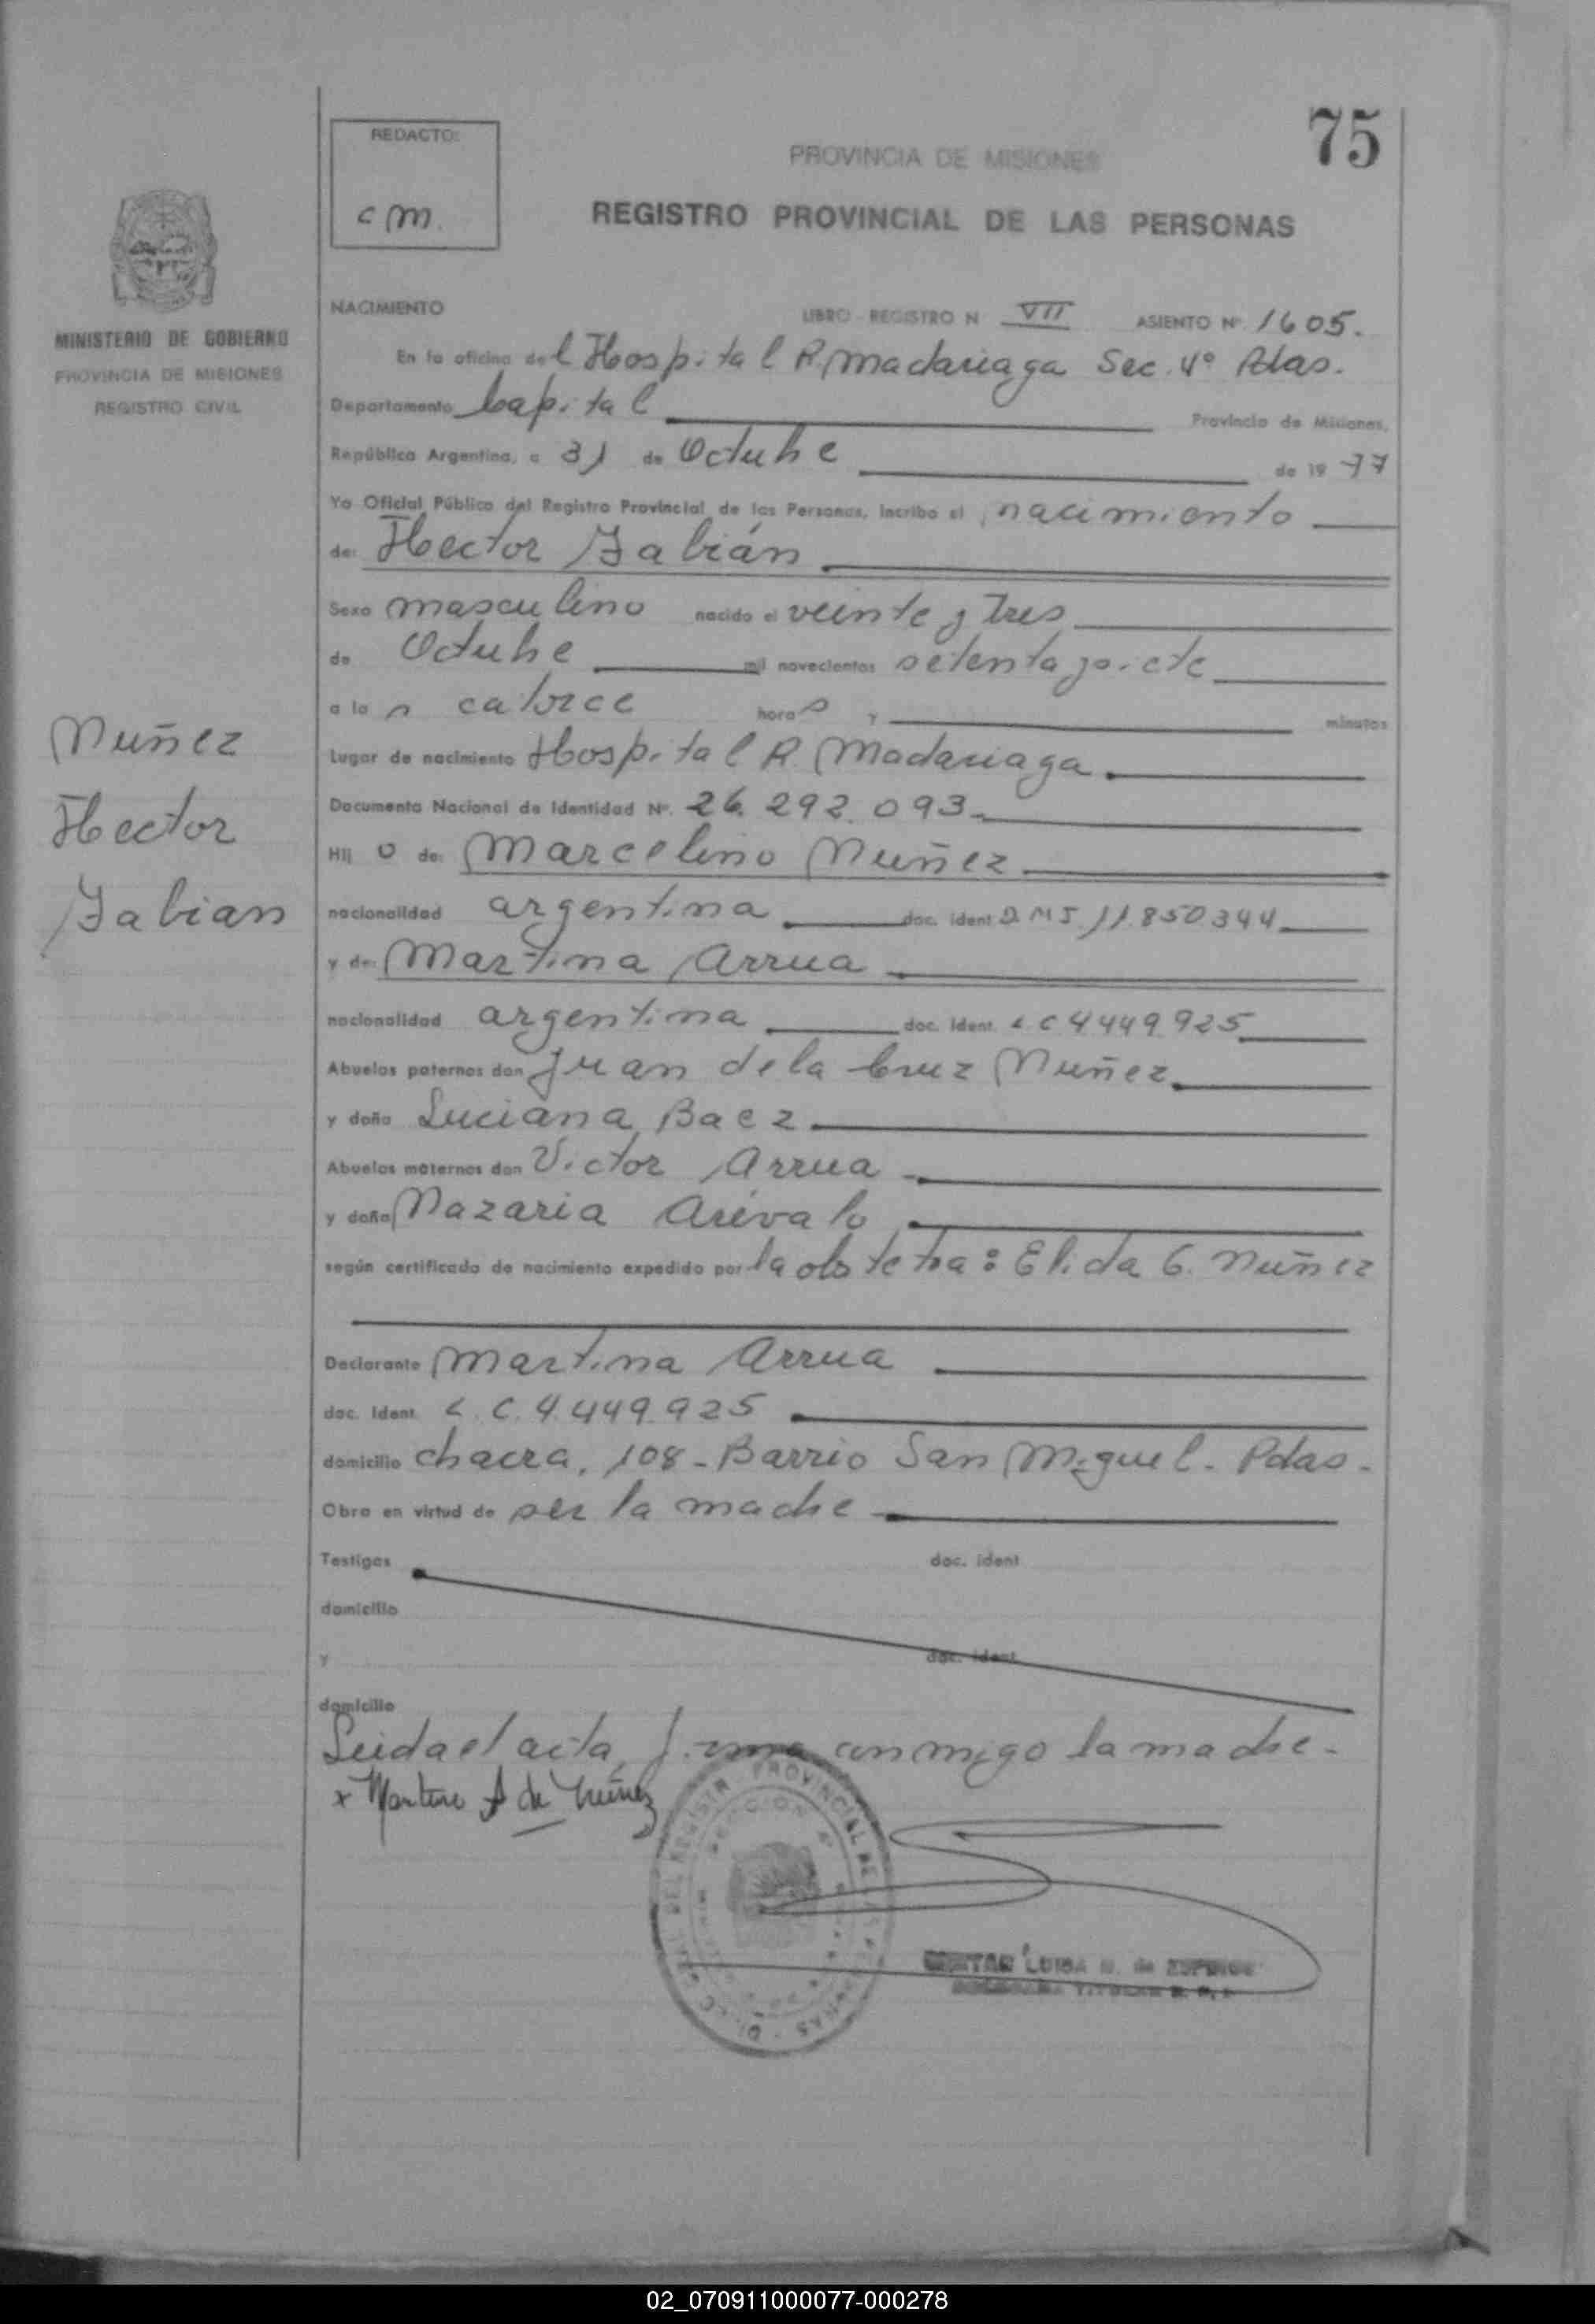 75
REDACTO:
c m.
PROVINCIA DE MISIONES
REGISTRO PROVINCIAL DE LAS PERSONAS
MINISTERIO DE GOBIERNO
PROVINCIA DE MISIONES
REGISTRO CIVIL
NACIMIENTO LIBRO - REGISTRO N VII ASIENTO Nº 1605.
En la oficina del Hospital R. Madariaga Sec. 4º Pdas.
Departamento Capital Provincia de Misiones,
República Argentina, a 31 de Octubre de 1977
Yo Oficial Público del Registro Provincial de las Personas, incribo el nacimiento
de: Hector Fabián
Sexo masculino nacido el veinte y tres
de Octubre mil novecientos setenta y siete
a las catorce horas y minutos
Lugar de nacimiento Hospital R. Madariaga
Documento Nacional de Identidad Nº. 26.292.093
Hijo de: Marcelino Nuñez
nacionalidad argentina doc. ident D.N.I. 11.850.344
y de: Martina Arrua
nacionalidad argentina doc. ident. L C 4.449.925
Abuelos paternos don Juan de la Cruz Nuñez
y doña Luciana Baez
Abuelos maternos don Victor Arrua
y doña Nazaria Arévalo
según certificado de nacimiento expedido por la obstetra: Elida G. Nuñez
Declarante Martina Arrua
doc. Ident. L. C. 4.449.925
domicilio chacra, 108 - Barrio San Miguel - Pdas -
Obra en virtud de ser la madre
Testigos doc. ident
domicilio
y doc. ident
domicilio
Leida el acta, firma conmigo la madre -
x Martina A de Nuñez
LUISA
Nuñez
Hector
Fabian
02_070911000077-000278